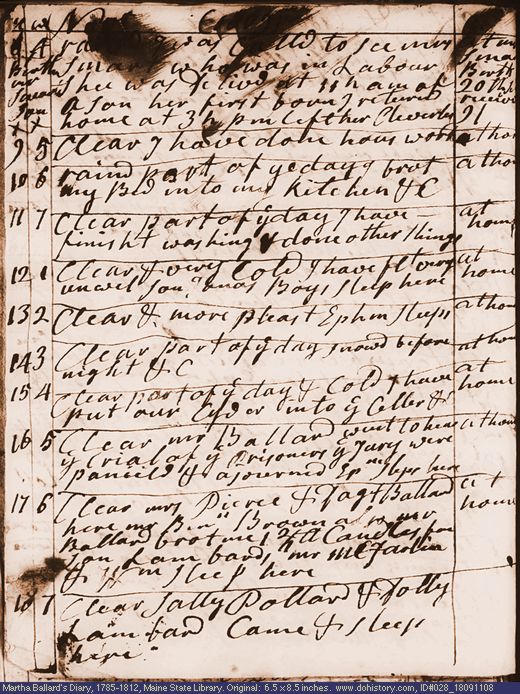 8 4 rained I was Calld to see mrs
Smart who was in Labour
Shee was delivd at 11 h am of
a Son her first born I returnd
home at 3 h pm left her Cleverly
at mr
Smarts
Birth
20th
receivd
Birth
9 5 Clear I have done hous work
at home
10 6 raind part of ye day I brot
my Bed in to my Kitchen & C
at home
11 7 Clear part of ye day I have
finisht washing & done other things
at
home
12 1 Clear & very Cold I have flt very
unwell Son Boys Sleep here
at
home
13 2 Clear & more pleast Ephm Sleeps
at home
14 3 Clear part of ye day snowd before
night & C
at home
15 4 Clear part of ye day & Cold I have
put our Cyder into ye Celler &
at
home
16 5 Clear mr Ballard went to hear
ye trial of ye Prisoners ye Jury were
panield & ajourned Epm Sleps here
at home
17 6 Clear mrs Pierce & Ballard
here mr Benn Brown mr
Ballard brot me Candles for
Son Lambards mr McFarlin
& Wm Sleep here
at
home
18 7 Clear Sally Pollard & Dolly
Lambard Came & Sleep
here
Martha Ballard's Diary, 1785-1812, Maine State Library. Original: 6.5 x 8.5 inches. www.dohistory.com, ID#028_18091108